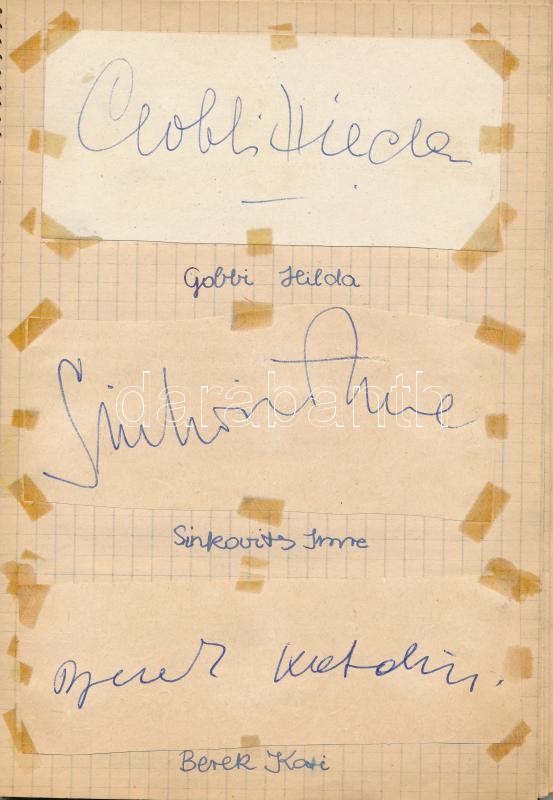 Gobbi Hilda
Gobbi Hilda
Sinkovits Imre
darabanth
Sinkovits Imre
Berek Katalin.
Berek Kati